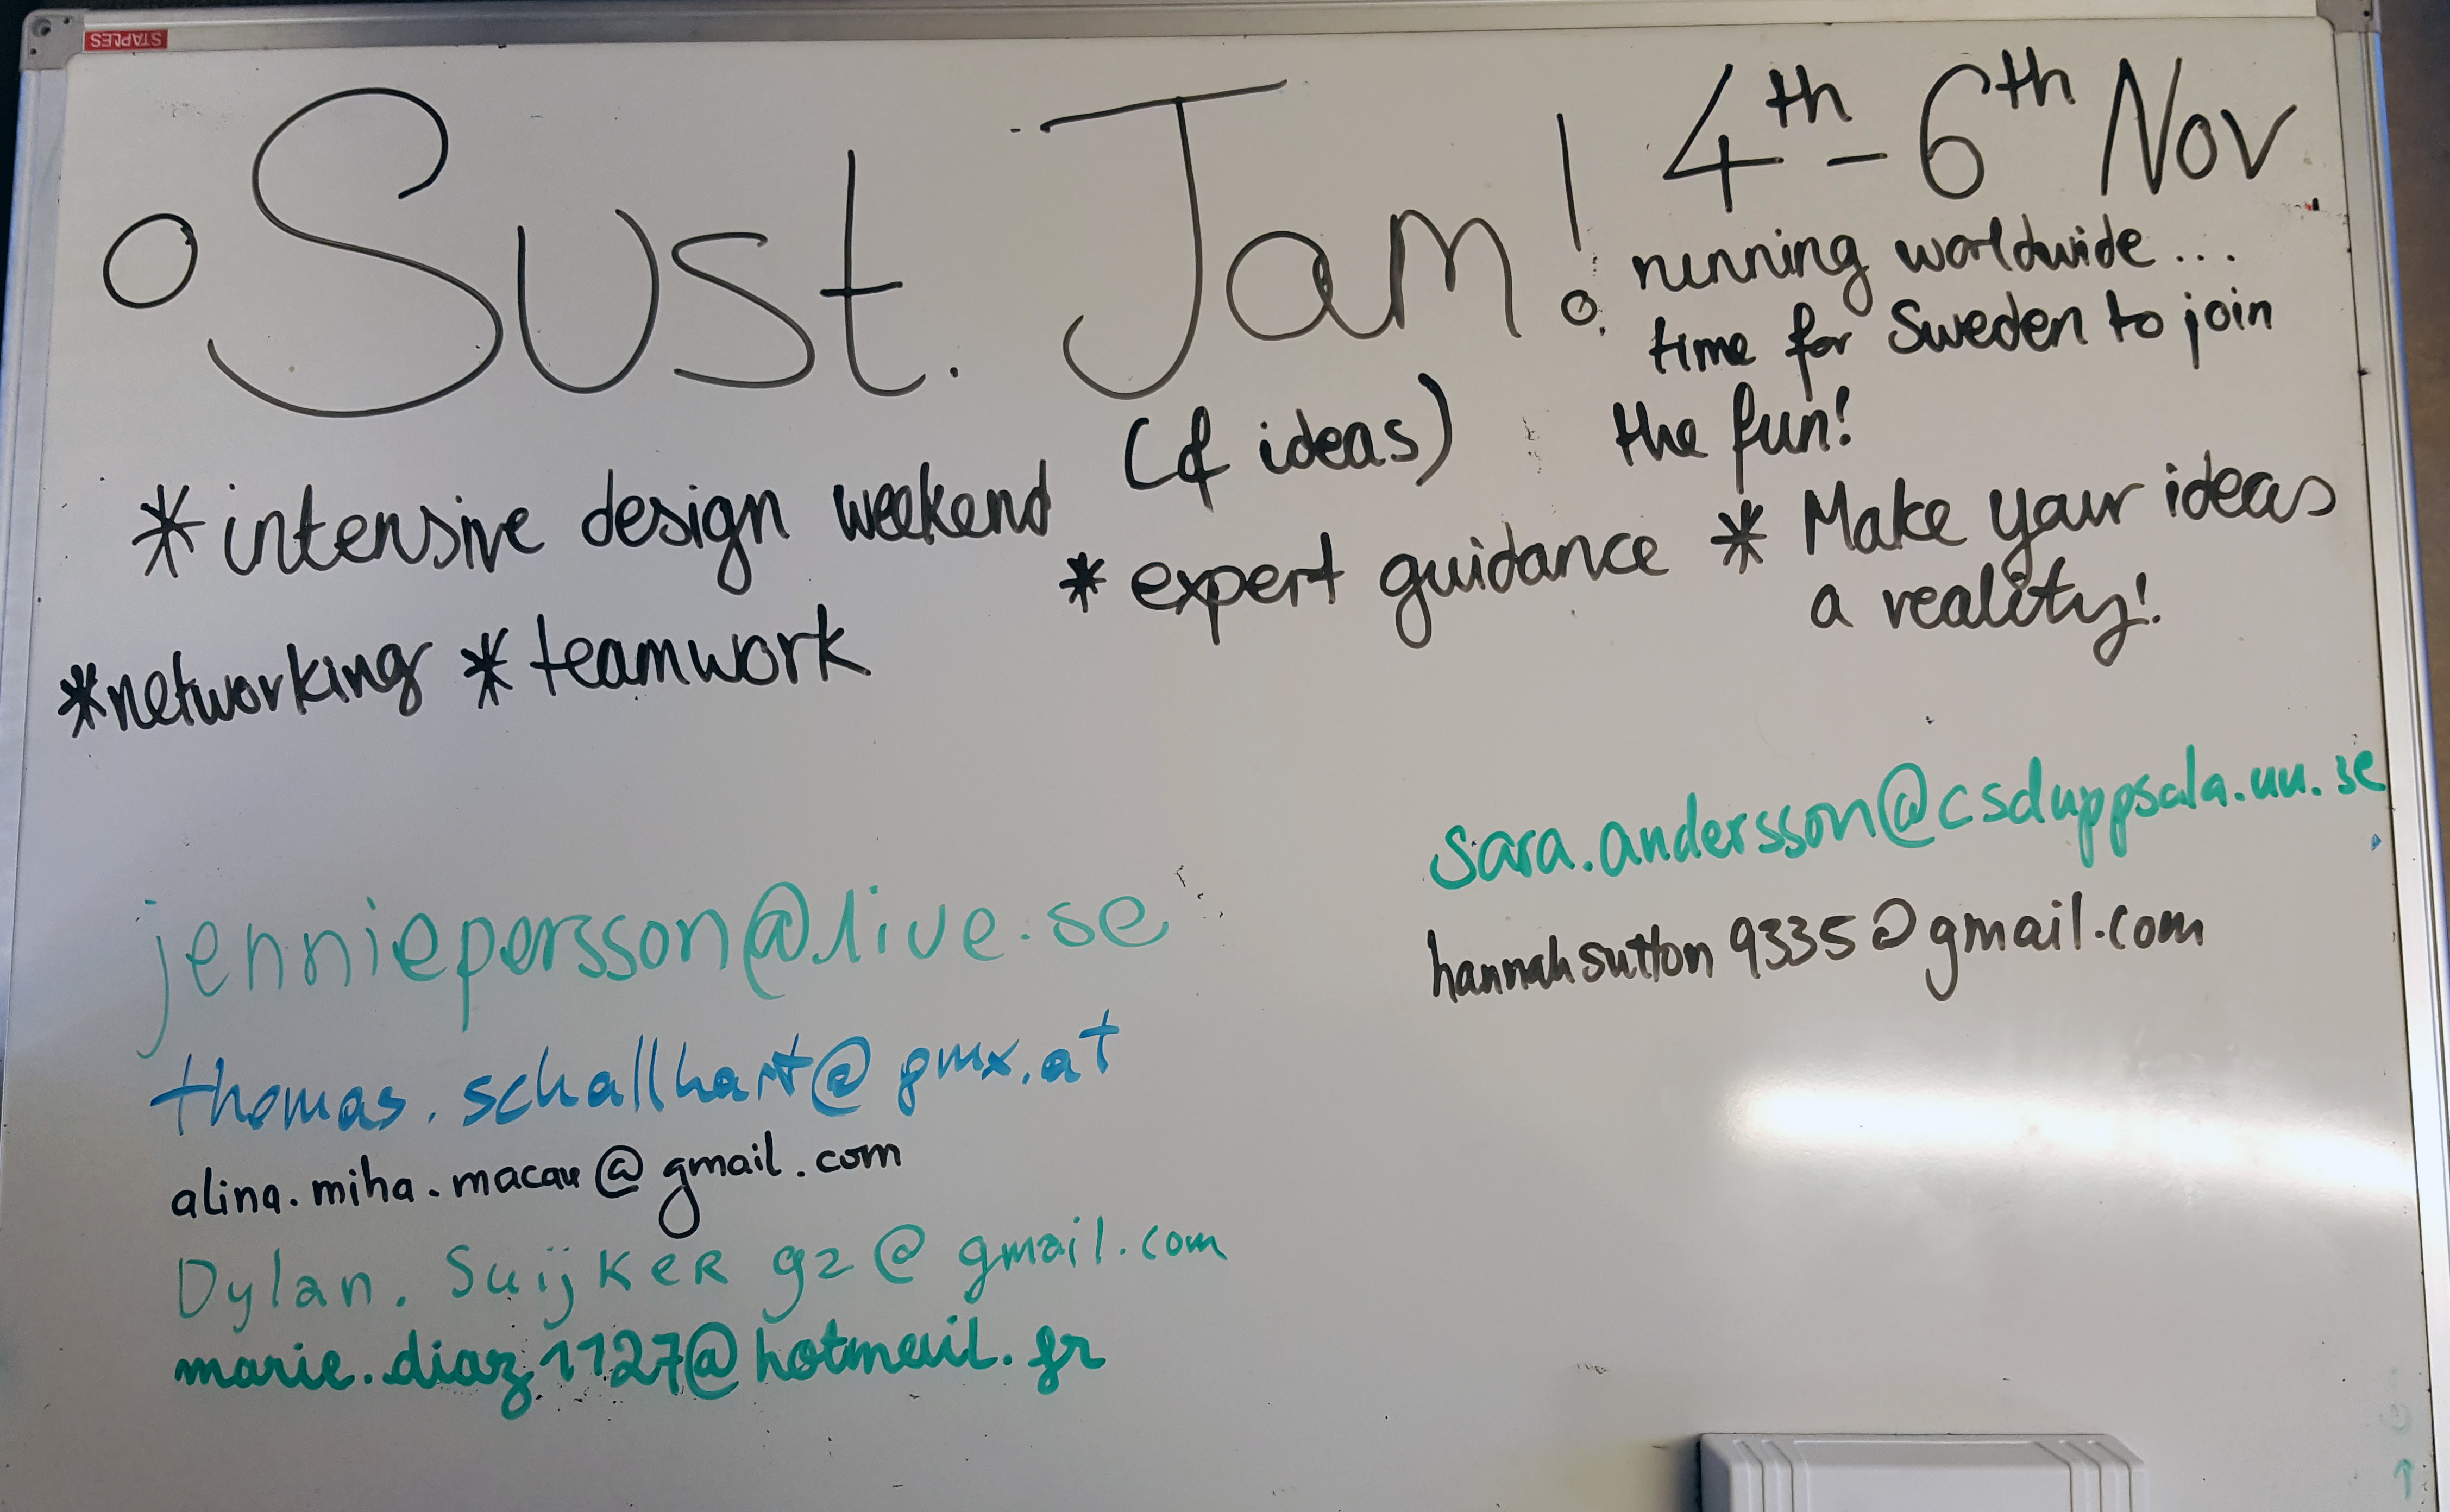 STAPLES
Sust. Jam!
(of ideas)
4th - 6th Nov
running worldwide...
time for Sweden to join
the fun!
* intensive design weekend
* expert guidance * Make your ideas
a reality!
* networking * teamwork
jenniepersson@live.se
thomas.schallhart@gmx.at
alina.miha.macau@gmail.com
Dylan.SuijkeR92@gmail.com
marie.diaz1127@hotmail.fr
sara.andersson@csduppsala.uu.se
hannahsutton9335@gmail.com